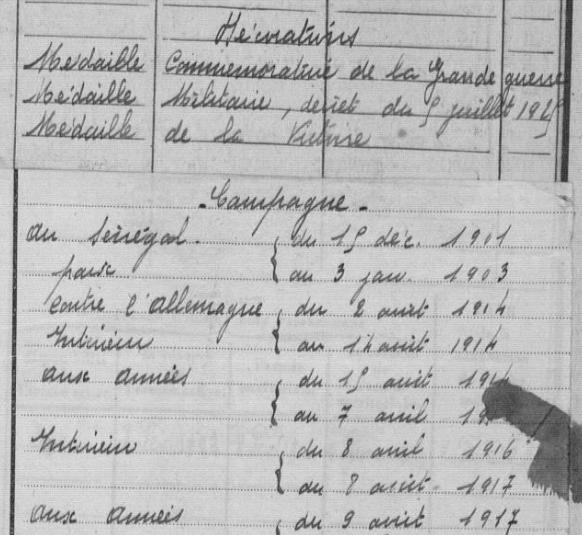 Décorations
Médaille Commémorative de la Grande guerre
Médaille Militaire, décret du 5 juillet 192
Médaille de la Victoire
- Campagne -
au Sénégal. du 15 déc. 1901
paix au 3 janv. 1903
contre l'allemagne, du 2 août 1914
Intérieur au 14 août 1914
aux armées du 15 août 1914
au 7 avril
Intérieur du 8 avril 1916
au 8 août 1917
aux armées du 9 août 1917